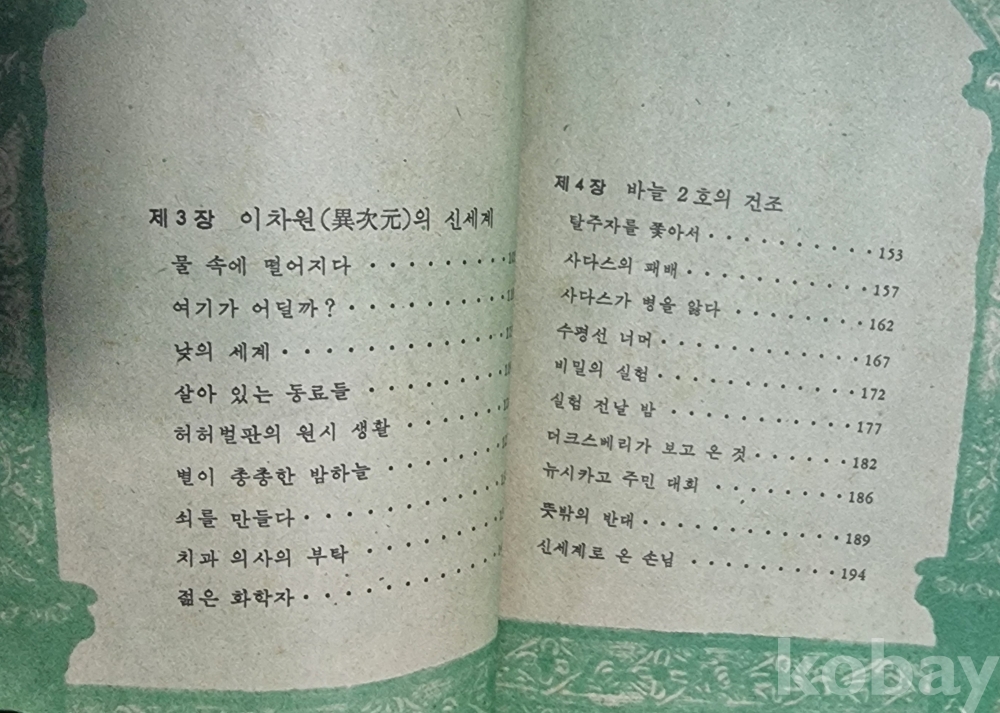 제 3 장 이차원(異次元)의 신세계
물 속에 떨어지다
여기가 어딜까?
낮의 세계
살아 있는 동료들
허허벌판의 원시 생활
별이 총총한 밤하늘
쇠를 만들다
치과 의사의 부탁
젊은 화학자
제 4 장 바늘 2 호의 건조
탈주자를 쫓아서 153
사다스의 패배 157
사다스가 병을 앓다 162
수평선 너머 167
비밀의 실험 172
실험 전날 밤 177
더크스베리가 보고 온 것 182
뉴시카고 주민 대회 186
뜻밖의 반대 189
신세계로 온 손님 194
kobay